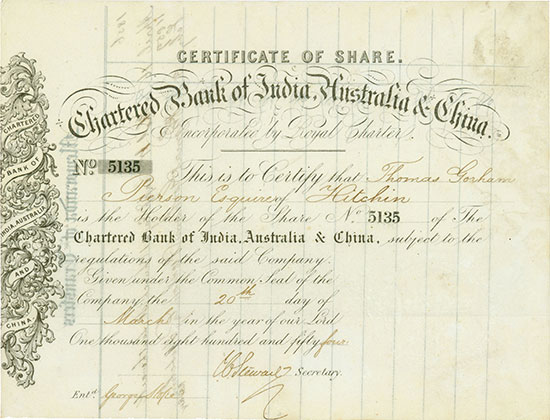 CERTIFICATE OF SHARE.
Chartered Bank of India, Australia & China.
Incorporated by Royal Charter.
No 5135 This is to Certify that Thomas Gorham
Pierson Esquire Hitchin
is the Holder of the Share No. 5135 of The
Chartered Bank of India, Australia & China, subject to the
regulations of the said Company.
Given under the Common Seal of the
Company the 20th day of
March in the year of our Lord
One thousand eight hundred and fifty four
Stewart Secretary.
Entd. George
CHARTERED
BANK OF
INDIA AUSTRALIA
AND
CHINA